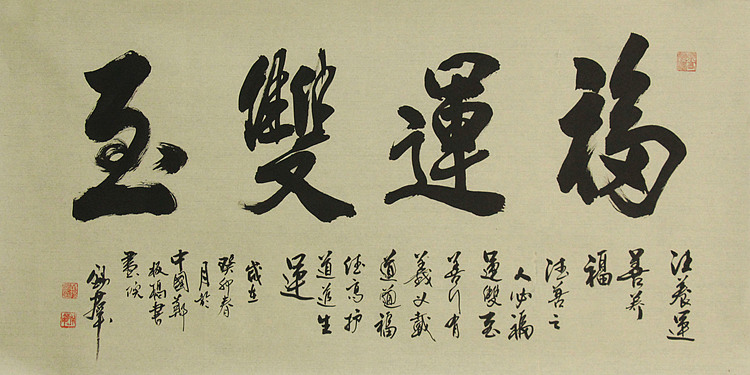 福運雙至
德養運
善养
福
德善之
人必福
運雙至
善行有
義載
道福
德高护
道生
運
癸卯春
月於
中國鄭
板橋书
畫院